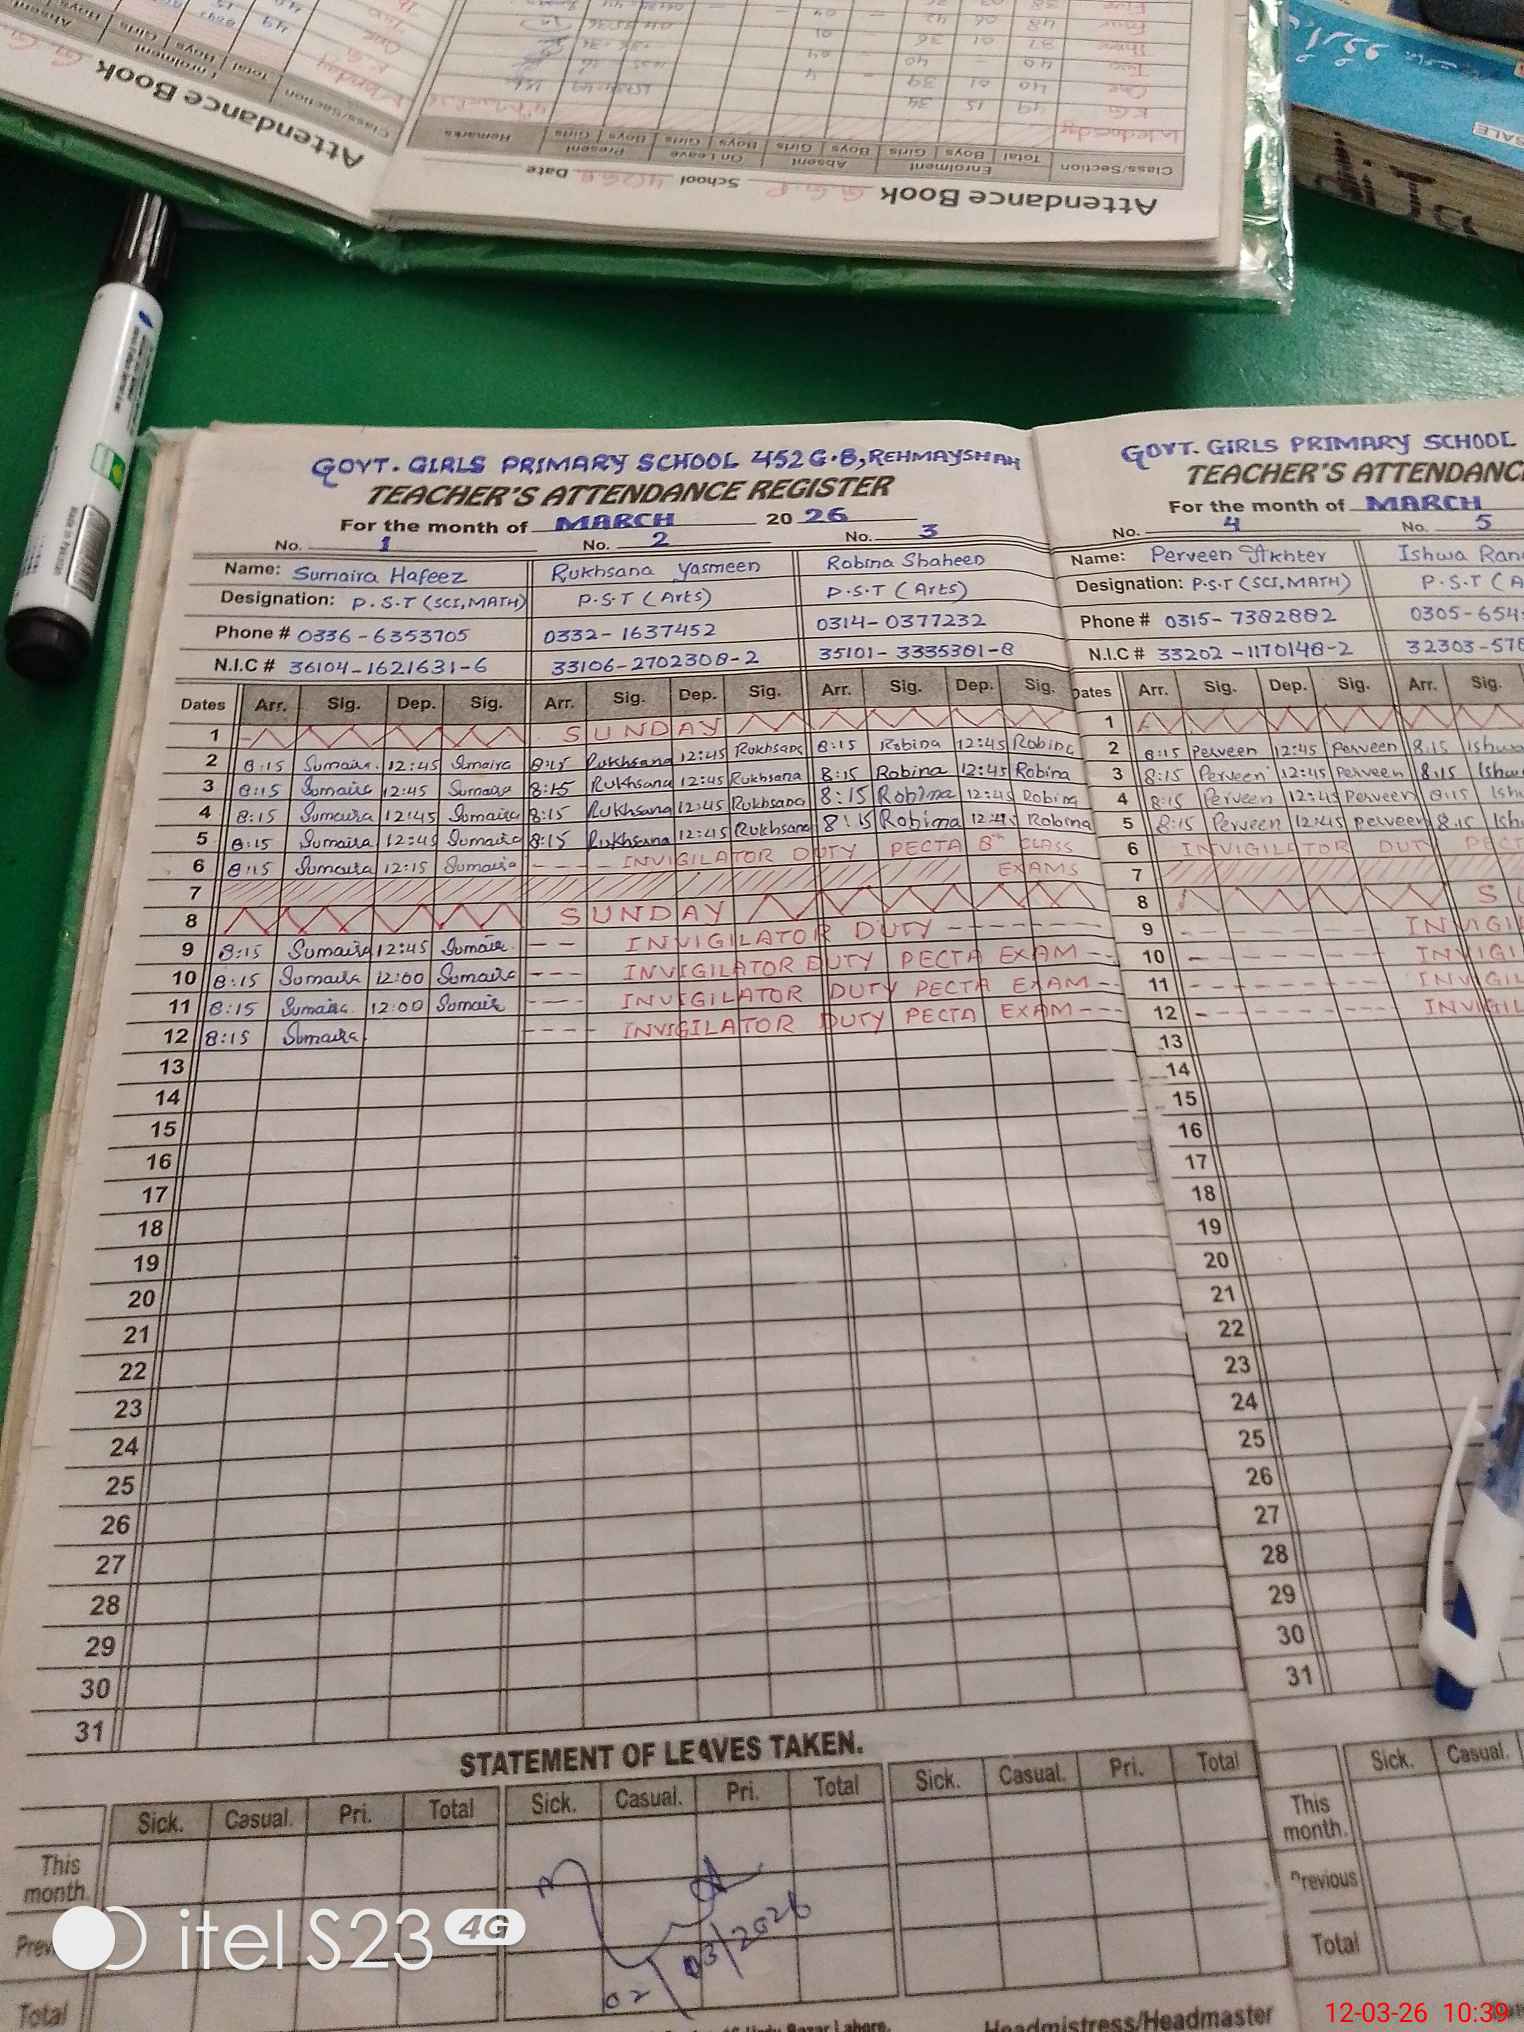 Attendance Book
Attendance Book G.G.P School 452G.B Date
Class/Section Enrolment Absent On Leave Present Remarks
Total Boys Girls Boys Girls Boys Girls Boys Girls
Wednesday
K.G 49 15 34
One 40 01 39
Two 40 - 40
Three 37 01 36
Four 48 06 42
SALE
GOVT. GIRLS PRIMARY SCHOOL 452 G.B, REHMAYSHAH
TEACHER'S ATTENDANCE REGISTER
For the month of MARCH 20 26
No. 1 No. 2 No. 3
Name: Sumaira Hafeez Rukhsana Yasmeen Robina Shaheen
Designation: P.S.T (SCI, MATH) P.S.T (Arts) P.S.T (Arts)
Phone # 0336-6353705 0332-1637452 0314-0377232
N.I.C # 36104-1621631-6 33106-2702308-2 35101-3335381-8
Dates Arr. Sig. Dep. Sig. Arr. Sig. Dep. Sig. Arr. Sig. Dep. Sig.
1 SUNDAY
2 8:15 Sumaira 12:45 Sumaira 8:15 Rukhsana 12:45 Rukhsana 8:15 Robina 12:45 Robina
3 8:15 Sumaira 12:45 Sumaira 8:15 Rukhsana 12:45 Rukhsana 8:15 Robina 12:45 Robina
4 8:15 Sumaira 12:45 Sumaira 8:15 Rukhsana 12:45 Rukhsana 8:15 Robina 12:45 Robina
5 8:15 Sumaira 12:45 Sumaira 8:15 Rukhsana 12:45 Rukhsana 8:15 Robina 12:45 Robina
6 8:15 Sumaira 12:15 Sumaira --- INVIGILATOR DUTY PECTA 8th CLASS
7 EXAMS
8 SUNDAY
9 8:15 Sumaira 12:45 Sumair --- INVIGILATOR DUTY -------
10 8:15 Sumaira 12:00 Sumaira --- INVIGILATOR DUTY PECTA EXAM --
11 8:15 Sumaira 12:00 Sumair --- INVIGILATOR DUTY PECTA EXAM --
12 8:15 Sumaira ---- INVIGILATOR DUTY PECTA EXAM ---
13
14
15
16
17
18
19
20
21
22
23
24
25
26
27
28
29
30
31
STATEMENT OF LEAVES TAKEN.
Sick. Casual. Pri. Total Sick. Casual. Pri. Total Sick. Casual. Pri. Total
This month.
Total
02/03/2026
Headmistress/Headmaster
GOVT. GIRLS PRIMARY SCHOOL
TEACHER'S ATTENDANC
For the month of MARCH
No. 4 No. 5
Name: Perveen Akhter Ishwa Ran
Designation: P.S.T (SCI, MATH) P.S.T (A
Phone # 0315-7382882 0305-654
N.I.C # 33202-1170148-2 32303-578
Dates Arr. Sig. Dep. Sig. Arr. Sig.
1
2 8:15 Perveen 12:45 Perveen 8:15 Ishwa
3 8:15 Perveen 12:45 Perveen 8:15 Ishw
4 8:15 Perveen 12:45 Perveen 8:15 Ish
5 8:15 Perveen 12:45 Perveen 8:15 Ish
6 INVIGILATOR DUTY PECT
7
8 S U
9 --------- INVIGI
10 --------- INVIGI
11 --------- INVIGIL
12 --------- INVIGIL
13
14
15
16
17
18
19
20
21
22
23
24
25
26
27
28
29
30
31
Sick. Casual.
This month.
Previous
Total
itel S23 4G
12-03-26 10:39